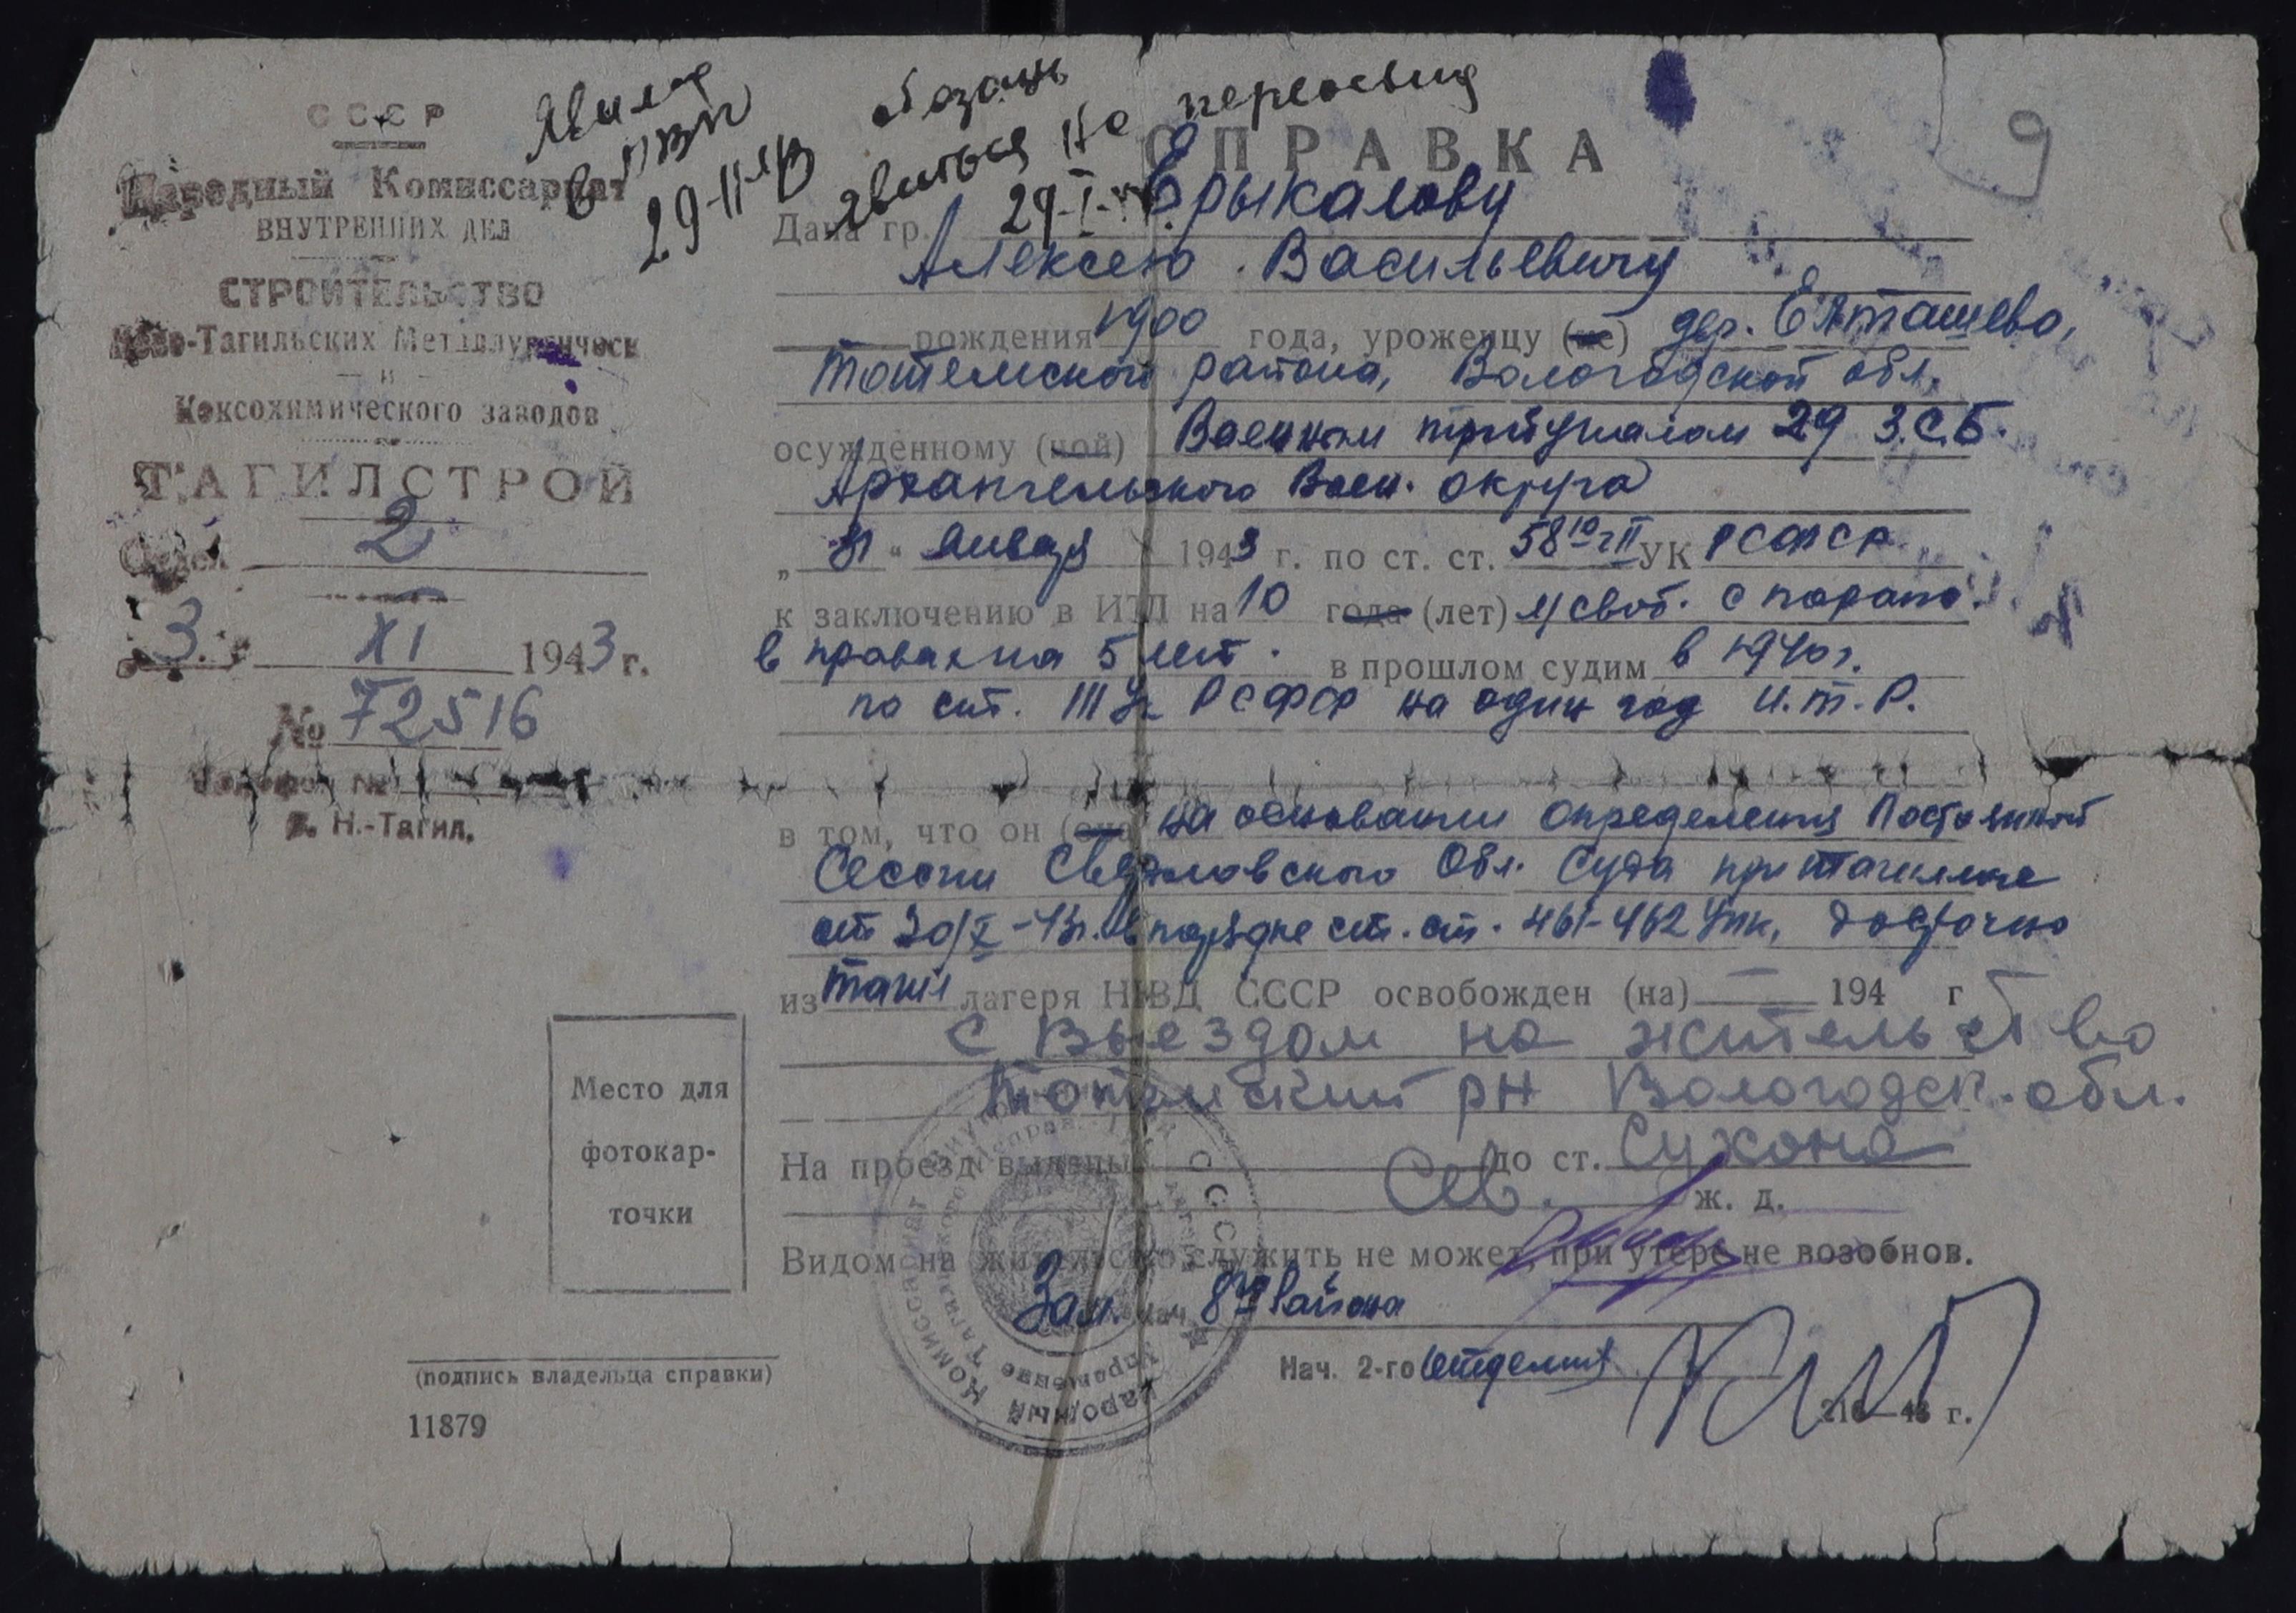 СССР
Народный Комиссариат
ВНУТРЕННИХ ДЕЛ
СТРОИТЕЛЬСТВО
Ново-Тагильских Металлургическ
и
Коксохимического заводов
ТАГИЛСТРОЙ
Отдел 2
3. XI 1943 г.
№ 72516
Телефон №
г. Н.-Тагил.
Место для
фотокар-
точки
(подпись владельца справки)
11879
в ПВП
29-II-
обязан
явиться на
29-I-
СПРАВКА
Дана гр. Ерыкалову
Алексею Васильевичу
рождения 1900 года, уроженцу (ке) дер.
Тотемского района, Вологодской обл.
осужденному (ной) Военным трибуналом 29 З.С.Б.
Архангельского Воен. округа
" " января 1943 г. по ст. ст. 58 10 ч II УК РСФСР
к заключению в ИТЛ на 10 года (лет) л/своб. с пораж.
в правах на 5 лет. в прошлом судим в 1940 г.
по ст. III УК РСФСР на один год И.Т.Р.
в том, что он (она на основании определения Постоянной
Сессии Свердловского Обл. Суда при Тагиллаге
от 30/X-43г. в порядке ст. ст. 461-462 УПК, досрочно
из Тагил лагеря НКВД СССР освобожден (на) — 194 г
с выездом на жительство
Тотемский рн Вологодск. обл.
На проезд выданы до ст. Сухона
Сев. ж. д.
Видом на жительство служить не может, при утере не возобнов.
Зам. нач. 8го Района
Нач. 2-го отделения
216—43 г.
Народный Комиссариат
СССР
Управление
9